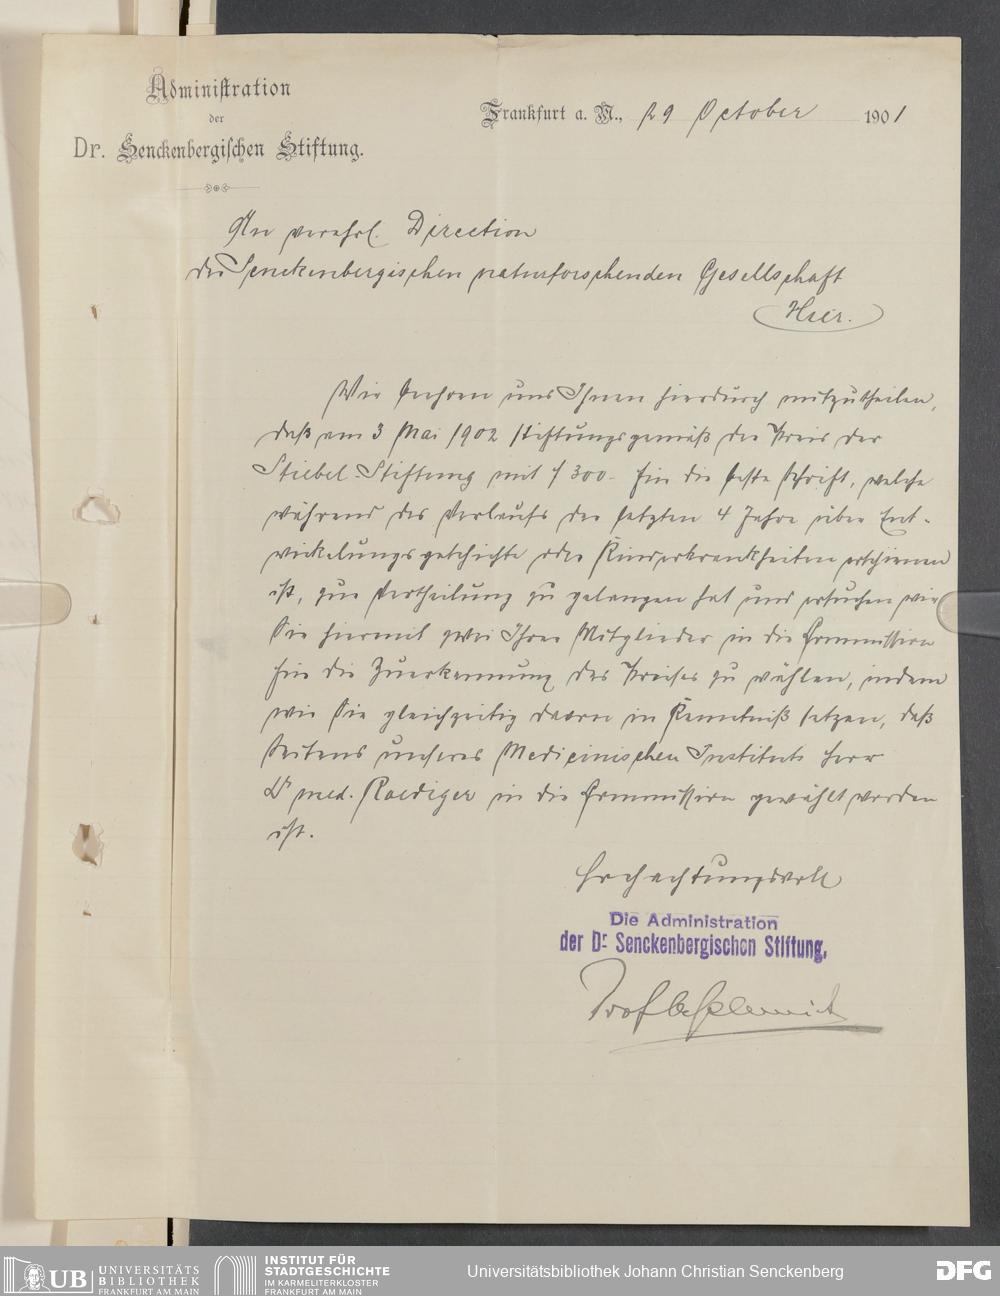 Administration
der
Dr. Senckenbergischen Stiftung.
Frankfurt a. M., 29 October 1901
An verehrl. Direction
der Senckenbergischen naturforschenden Gesellschaft
Hier.
Wir beehren uns Ihnen hierdurch mitzutheilen,
daß am 3 Mai 1902 stiftungsgemäß der Preis der
Stiebel-Stiftung mit f 300.- für die beste Schrift, welche
während des Verlaufs der letzten 4 Jahre über Ent-
wickelungsgeschichte oder Kinderkrankheiten erschienen
ist, zur Vertheilung zu gelangen hat und ersuchen wir
Sie hiermit zwei Ihrer Mitglieder in die Commission
für die Zuerkennung des Preises zu wählen, indem
wir Sie gleichzeitig davon in Kenntniß setzen, daß
Seitens unseres Medicinischen Instituts Herr
Dr med. Roediger in die Commission gewählt worden
ist.
Hochachtungsvoll
Die Administration
der Dr Senckenbergischen Stiftung.
Prof
UB UNIVERSITÄTS
BIBLIOTHEK
FRANKFURT AM MAIN
INSTITUT FÜR
STADTGESCHICHTE
IM KARMELITERKLOSTER
FRANKFURT AM MAIN
Universitätsbibliothek Johann Christian Senckenberg
DFG